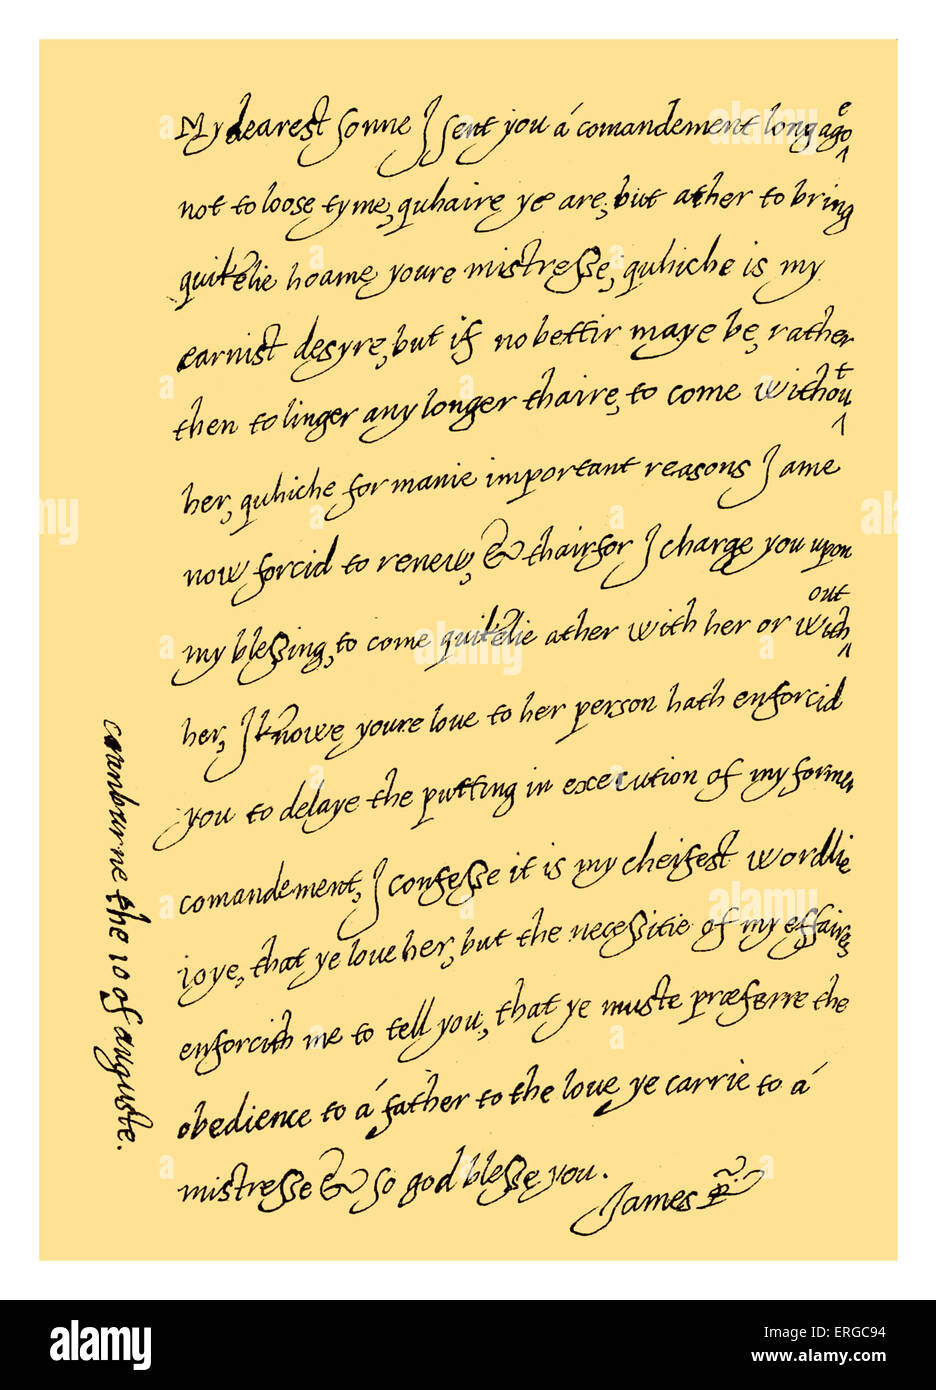 My dearest sonne I sent you á comandement long agoe
not to loose tyme, quhaire ye are, but ather to bring
quikelie hoame youre mistresse, quhiche is my
earnist desyre, but if no bettir maye be, rather
then to linger any longer thaire, to come without
her, quhiche for manie important reasons I ame
now forcid to renew, & thairfor I charge you upon
my blessing, to come quikelie ather with her or without
her, I knowe youre love to her person hath enforcid
you to delaye the putting in execution of my former
comandement, I confesse it is my cheifest wordlie
ioye, that ye love her, but the necessitie of my effaires
enforcith me to tell you, that ye muste præferre the
obedience to á father to the love ye carrie to á
mistresse & so god blesse you.
James R.
cranburne the 10 of auguste.
alamy
Image ID: ERGC94
www.alamy.com